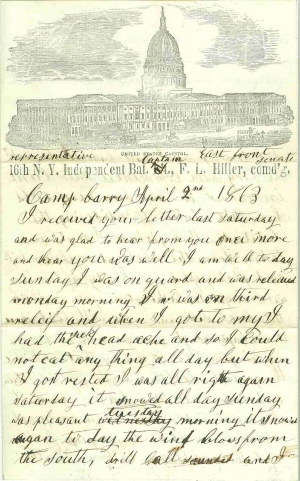 UNITED STATES CAPITOL
representative Captain East front Senate
16th N. Y. Independent Bat. F. L. Hiller, comd'g.
Camp Barry April 2nd 1863
I received your letter last Saturday
and was glad to hear from you once more
and hear you was well I am well to day
Sunday I was on guard and was relieved
monday morning I was on third
releif and when I gots to my
had the sick head ache and so I could
not eat any thing all day but when
I got rested I was all right again
Saturday it snowed all day Sunday
was pleasant tuesday wednesday morning it snowd
again to day the wind blows from
the south, drill call sounded and I